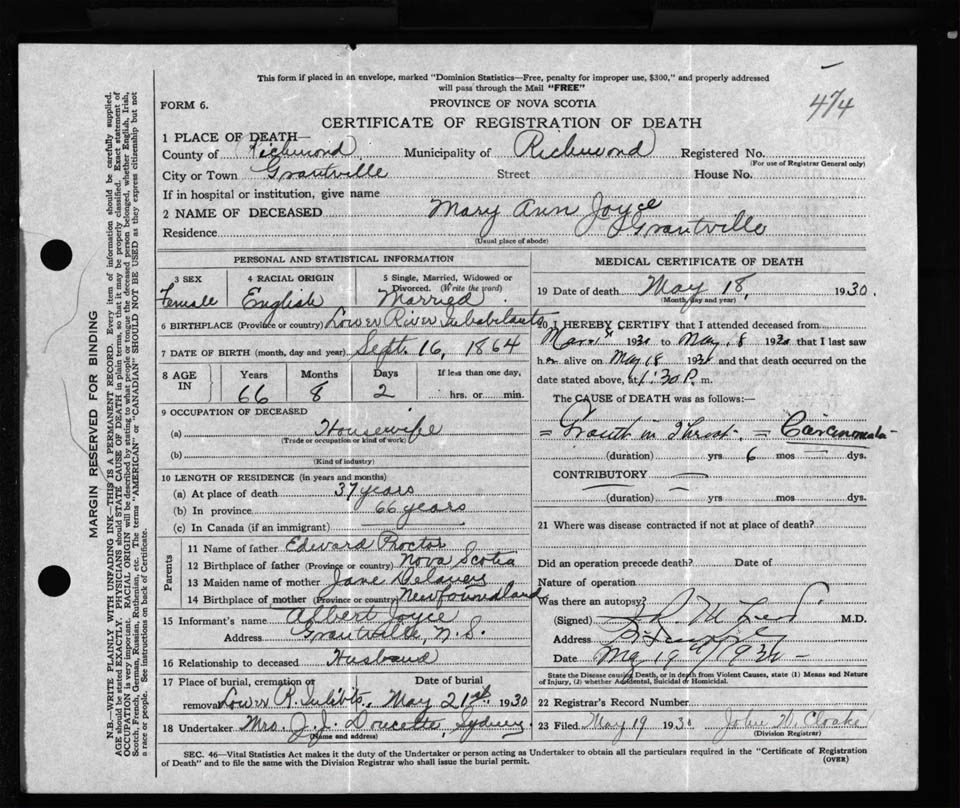 This form if placed in an envelope, marked "Dominion Statistics—Free, penalty for improper use, $300," and properly addressed
will pass through the Mail "FREE"
474
FORM 6.
PROVINCE OF NOVA SCOTIA
CERTIFICATE OF REGISTRATION OF DEATH
1 PLACE OF DEATH—
County of Richmond, Municipality of Richmond Registered No.
(For use of Registrar General only)
City or Town Grantville Street House No.
If in hospital or institution, give name
2 NAME OF DECEASED Mary Ann Joyce
Residence Grantville
(Usual place of abode)
PERSONAL AND STATISTICAL INFORMATION
3 SEX Female
4 RACIAL ORIGIN English
5 Single, Married, Widowed or
Divorced. (Write the word)
Married.
6 BIRTHPLACE (Province or country) Lower River Inhabitants
7 DATE OF BIRTH (month, day and year) Sept. 16, 1864
8 AGE IN
Years Months Days If less than one day,
66 8 2 hrs. or min.
9 OCCUPATION OF DECEASED
(a) Housewife
(Trade or occupation or kind of work)
(b)
(Kind of industry)
10 LENGTH OF RESIDENCE (in years and months)
(a) At place of death 37 years
(b) In province 66 years
(c) In Canada (if an immigrant)
Parents
11 Name of father Edward Proctor
12 Birthplace of father (Province or country) Nova Scotia
13 Maiden name of mother Jane
14 Birthplace of mother (Province or country) Newfoundland
15 Informant's name Albert Joyce
Address Grantville, N.S.
16 Relationship to deceased Husband
17 Place of burial, cremation or Date of burial
removal Lower R. Inhbts. May 21st 1930
18 Undertaker Mrs. J. J. Doucette, Sydney
(Name and address)
MEDICAL CERTIFICATE OF DEATH
19 Date of death May 18, 1930.
(Month, day and year)
20 I HEREBY CERTIFY that I attended deceased from
1930 to May 18 1930 that I last saw
her alive on May 18 1930 and that death occurred on the
date stated above, at 1:30 P. m.
The CAUSE of DEATH was as follows:—
= Growth in Throat. = Carcinomata
(duration) yrs 6 mos dys.
CONTRIBUTORY
(duration) yrs. mos. dys.
21 Where was disease contracted if not at place of death?
Did an operation precede death? Date of
Nature of operation
Was there an autopsy?
(Signed) M.D.
Address
Date May 19th 1930
State the Disease causing Death, or in death from Violent Causes, state (1) Means and Nature
of Injury, (2) whether Accidental, Suicidal or Homicidal.
22 Registrar's Record Number
23 Filed May 19 1930 John
(Division Registrar)
SEC. 46—Vital Statistics Act makes it the duty of the Undertaker or person acting as Undertaker to obtain all the particulars required in the "Certificate of Registration
of Death" and to file the same with the Division Registrar who shall issue the burial permit.
(OVER)
MARGIN RESERVED FOR BINDING
N.B.—WRITE PLAINLY WITH UNFADING INK—THIS IS A PERMANENT RECORD. Every item of information should be carefully supplied.
AGE should be stated EXACTLY. PHYSICIANS should STATE CAUSE OF DEATH in plain terms, so that it may be properly classified. Exact statement of
OCCUPATION is very important. RACIAL ORIGIN will be described by stating to what people or tongue the deceased person belonged, whether English, Irish,
Scotch, French, German, Russian, Ruthenian, etc. The terms "AMERICAN" or "CANADIAN" SHOULD NOT BE USED as they express citizenship but not
a race or people. See instructions on back of Certificate.